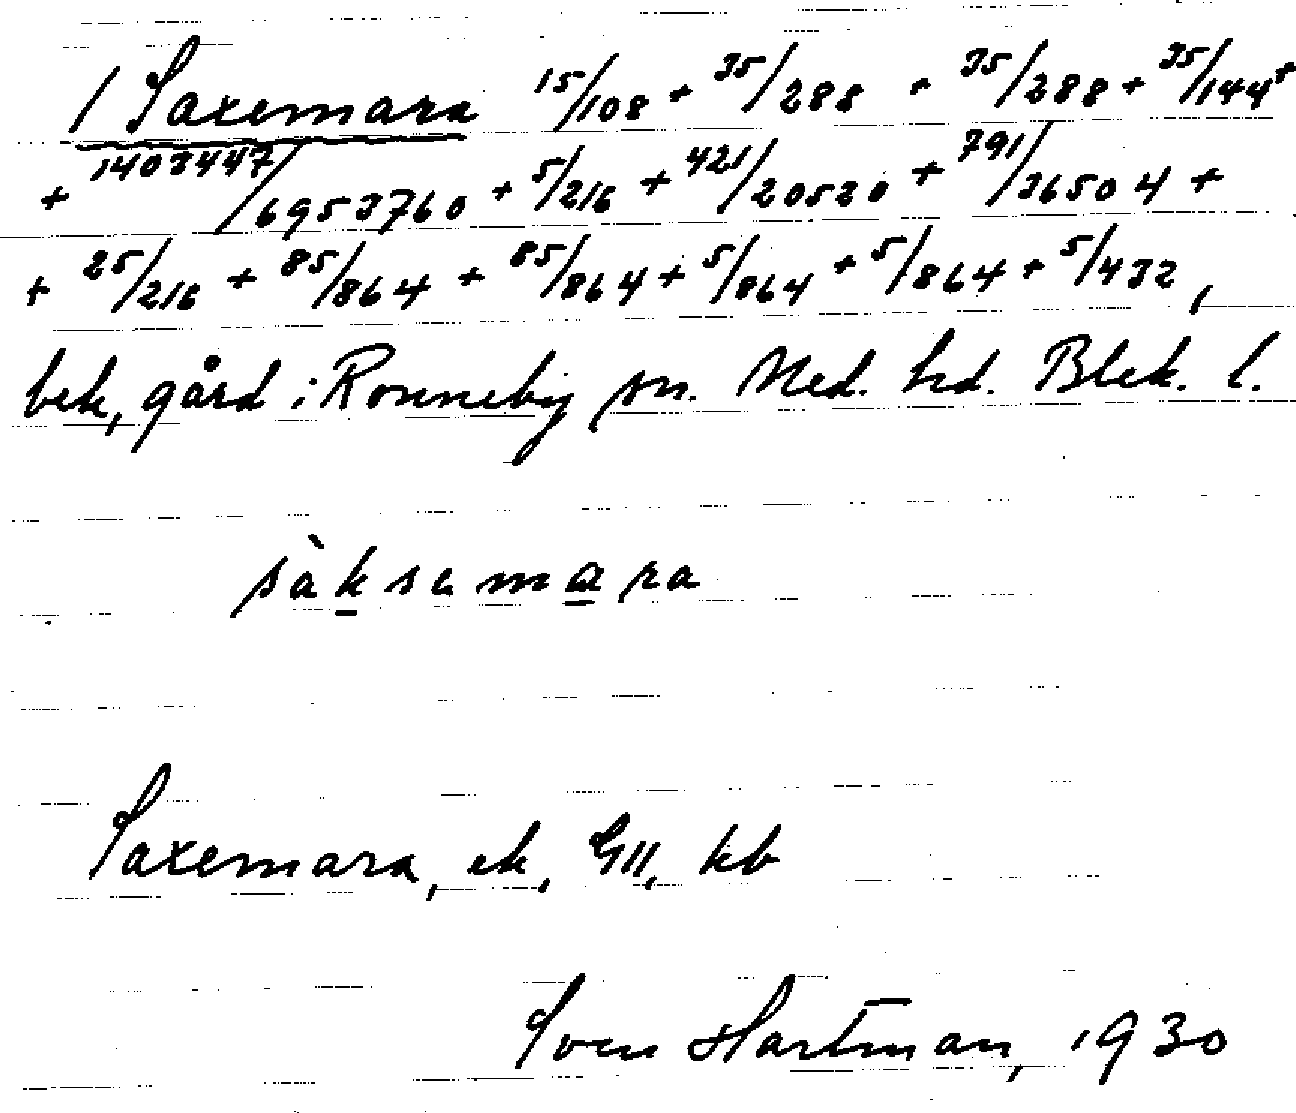 1 Saxemara 15/108 + 35/288 + 35/288 + 35/144 +
+ 1403447/6953760 + 5/216 + 421/20520 + 791/36504 +
+ 25/216 + 85/864 + 85/864 + 5/864 + 5/864 + 5/432,
bek, gård i Ronneby sn. Med. hd. Blek. l.
sàksemara
Saxemara, ek, GII, kb
Sven Hartman, 1930